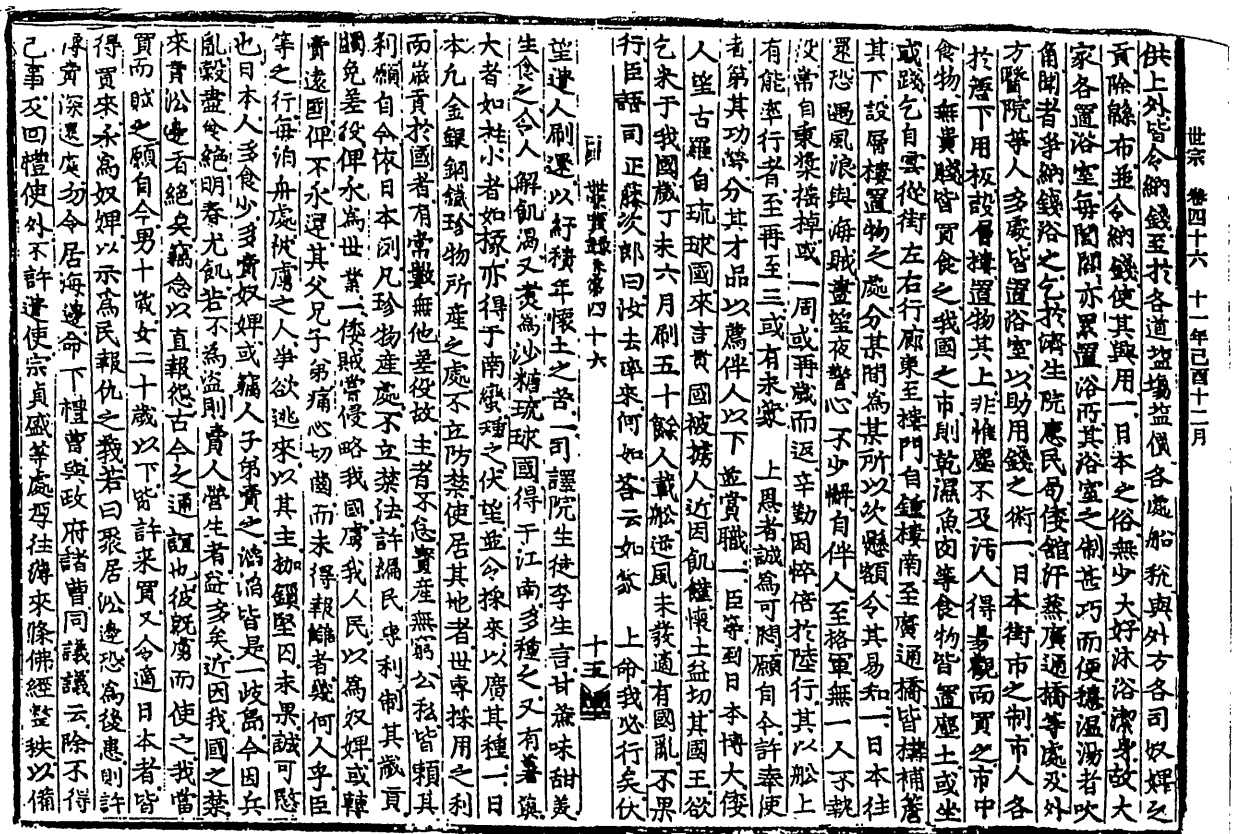 世宗 卷四十六 十一年己酉十二月
供上外皆令納錢至於各道塩場塩價各處船稅與外方各司奴婢之
貢除緜布並令納錢使其興用一日本之俗無少大好沐浴潔身故大
家各置浴室每閭閻亦累置浴所其浴室之制甚巧而便穩溫湯者吹
角聞者爭納錢浴之乞於濟生院惠民局倭館汗蒸廣通橋等處及外
方醫院等人多處皆置浴室以助用錢之術一日本街市之制市人各
於簷下用板設層樓置物其上非惟塵不及汚人得易觀而買之市中
食物無貴賤皆買食之我國之市則乾濕魚肉等食物皆置塵土或坐
或踐乞自雲從街左右行廊東至樓門自鍾樓南至廣通橋皆構補簷
其下設層樓置物之處分某間爲某所以次懸額令其易知一日本往
還恐遇風浪與海賊晝望夜警心不少懈自伴人至格軍無一人不執
役常自秉槳搖棹或一周或再歲而返辛勤困悴倍於陸行其以船上
有能率行者至再至三或有未蒙 上恩者誠爲可閔願自今許奉使
者第其功勞分其才品以薦伴人以下並賞職一臣等到日本博大倭
人望古羅自琉球國來言貴國被擄人近因飢饉懷土益切其國王欲
乞米于我國歲丁未六月刷五十餘人載船逆風未發適有國亂不果
行臣語司正藤次郞曰汝去率來何如答云如蒙 上命我必行矣伏
莊憲實錄卷第四十六 十五
望遣人刷還以紓積年懷土之苦一司譯院生徒李生言甘蔗味甜美
生食之令人解飢渴又煮爲沙糖琉球國得于江南多種之又有薯藇
大者如柱小者如椽亦得于南蠻種之伏望並令採來以廣其種一日
本凡金銀銅鐵珍物所産之處不立防禁使居其地者世專採用之利
而歲貢於國者有常數無他差役故主者不怠寶産無窮公私皆賴其
利願自今依日本例凡珍物産處不立禁法許編民專利制其歲貢
蠲免差役俾永爲世業一倭賊嘗侵略我國虜我人民以爲奴婢或轉
賣遠國俾不永還其父兄子弟痛心切齒而未得報讎者幾何人乎臣
等之行每泊舟處被虜之人爭欲逃來以其主枷鎖堅囚未果誠可愍
也日本人多食少多賣奴婢或竊人子弟賣之滔滔皆是一歧島今因兵
亂穀盡絶明春尤飢若不爲盜則賣人營生者益多矣近因我國之禁
來賣沿邊者絶矣竊念以直報怨古今之通誼也彼旣虜而使之我當
買而賤之願自今男十歲女二十歲以下皆許來買又令適日本者皆
得買來永爲奴婢以示爲民報仇之義若曰聚居沿邊恐爲後患則許
傳賣深遠處勿令居海邊命下禮曹與政府諸曹同議議云除不得
已事及回禮使外不許遣使宗貞盛等處存往薄來條佛經整秩以備